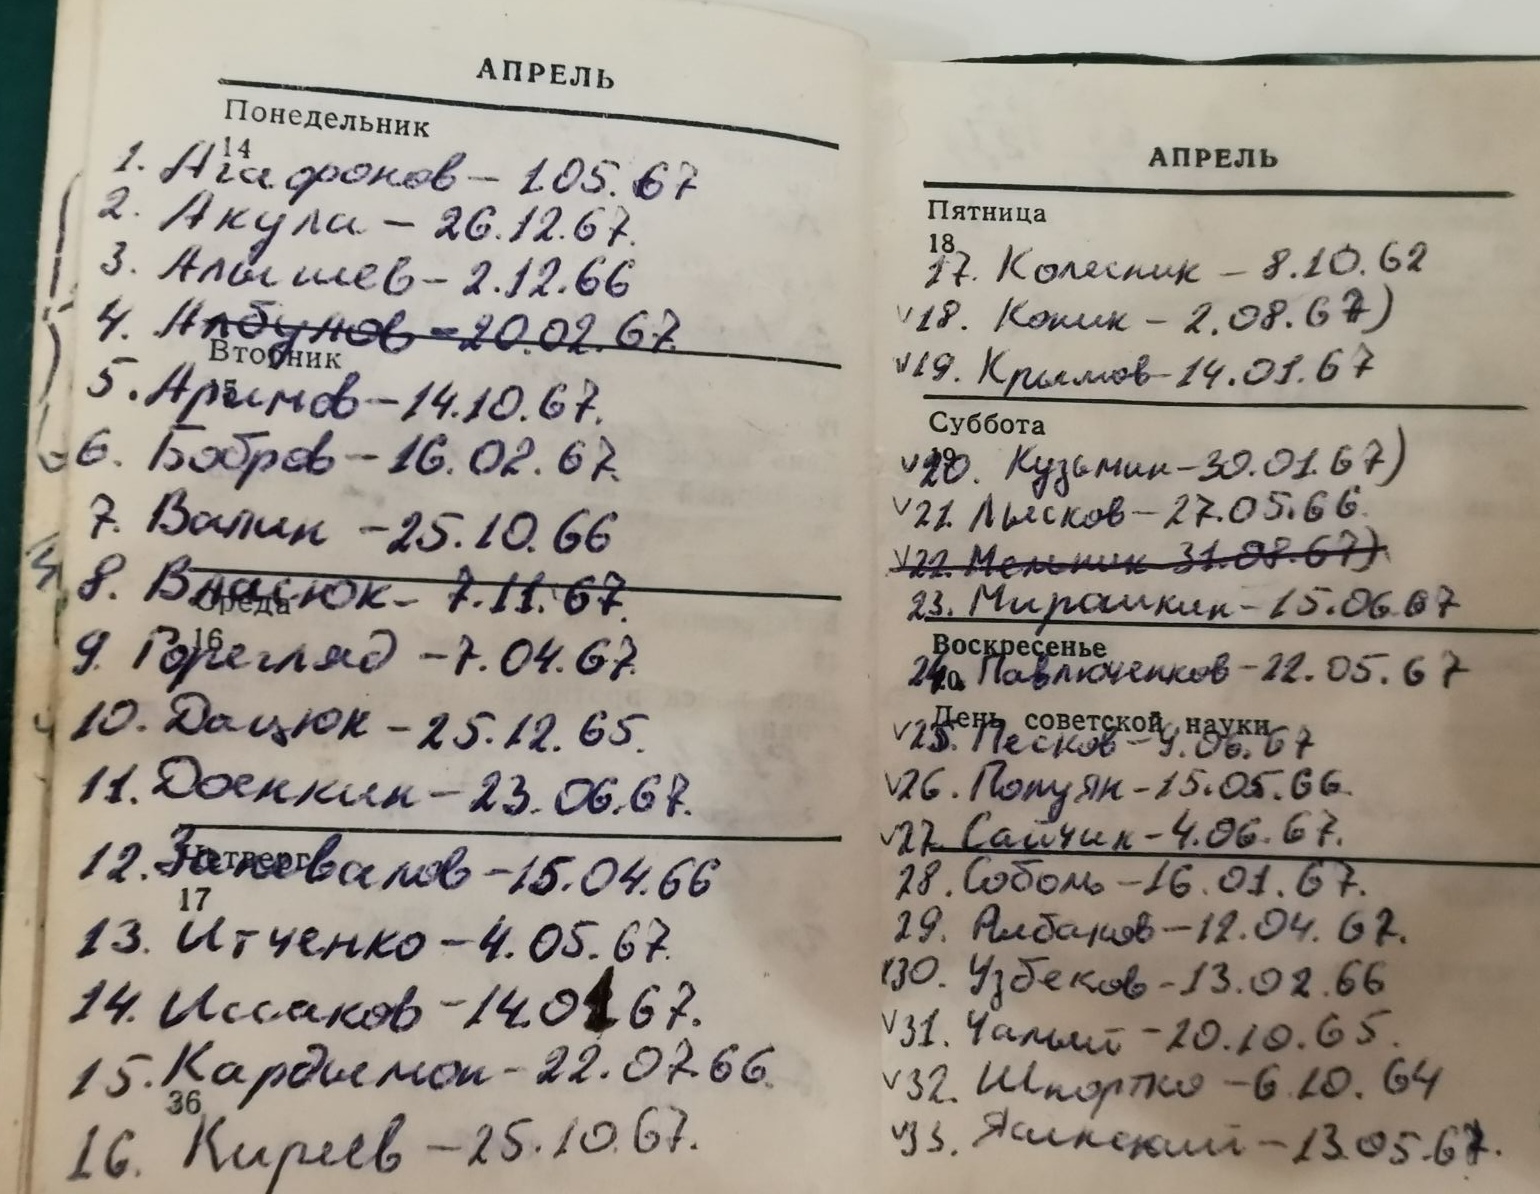 АПРЕЛЬ
Понедельник
14
1. Агафонов – 1.05.67
2. Акула – 26.12.67.
3. Алышев – 2.12.66
4. Албулов – 20.02.67.
Вторник
5. Аримов – 14.10.67.
6. Бобров – 16.02.67.
7. Валик – 25.10.66
8. Власюк – 7.11.67.
Среда
16
9. Горегляд – 7.04.67.
10. Дацюк – 25.12.65.
11. Доенкин – 23.06.67.
12. – 15.04.66
Четверг
17
13. Итченко – 4.05.67.
14. Исаков – 14.01.67.
15. Кардымон – 22.07.66.
36
16. Киреев – 25.10.67.
АПРЕЛЬ
Пятница
18
17. Колесник – 8.10.62
v18. Коник – 2.08.67)
v19. Крымов – 14.01.67
Суббота
v20. Кузьмин – 30.01.67)
v21. Лысков – 27.05.66.
v22. Мельник 31.08.67)
23. Мирошкин – 15.06.67
Воскресенье
24. Павлюченков – 22.05.67
День советской науки
v25. Песков – 9.06.67
v26. Попуян – 15.05.66.
v27. Сайчик – 4.06.67.
28. Соболь – 16.01.67.
29. – 12.04.67.
v30. Узбеков – 13.02.66
v31. Чалый – 20.10.65.
v32. Шпортко – 6.10.64
v33. Ясинский – 13.05.67.